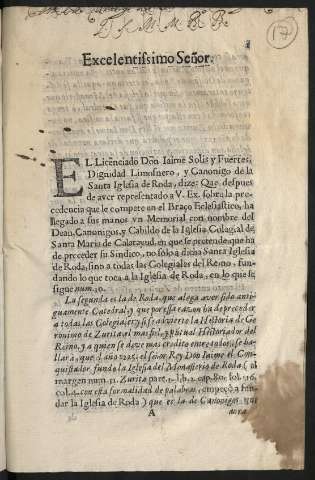 D. S. M. M. B. B.
17
Excelentissimo Señor.
EL Licenciado Don Iaime Solis y Fuertes,
Dignidad Limosnero, y Canonigo de la
Santa Iglesia de Roda, dize: Que despues
de aver representado a V. Ex. sobre la pre-
cedencia que le compete en el Braço Eclesiastico, ha
llegado a sus manos vn Memorial con nombre del
Dean, Canonigos, y Cabildo de la Iglesia Colegial de
Santa Maria de Calatayud, en que se pretende que ha
de preceder su Sindico, no solo a dicha Santa Iglesia
de Roda, sino a todas las Colegiales del Reino, fun-
dando lo que toca a la Iglesia de Roda, en lo que se
sigue num. 10.
La segunda es la de Roda, que alega aver sido anti-
guamente Catedral, y que por essa razon ha de preceder
a todas las Colegiales; y si se advierte la Historia de Ge-
ronimo de Zurita, el mas fiel, y puntual Historiador del
Reino, y a quien se deve mas credito entre todos, se ha-
llarà, que el año 1225. el señor Rey Don Iaime el Con-
quistador, fundò la Iglesia del Monasterio de Roda (al
margen num. 11. Zurita part. 1. lib. 2. cap. 80. fol. 16.
col. 4. con esta formalidad de palabras, empeçò a fun-
dar la Iglesia de Roda) que es la de Canonigos
A